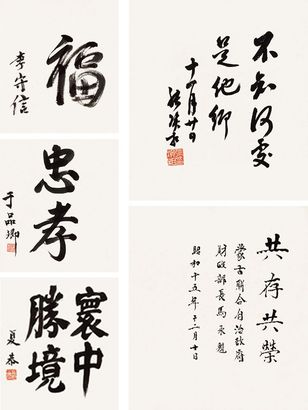 福
李守信
忠孝
于品卿
寰中
勝境
夏恭
不知何處
是他鄉
十一月廿日
共存共榮
蒙古聯合自治政府
財政部長馬永魁
昭和十五年十二月十日